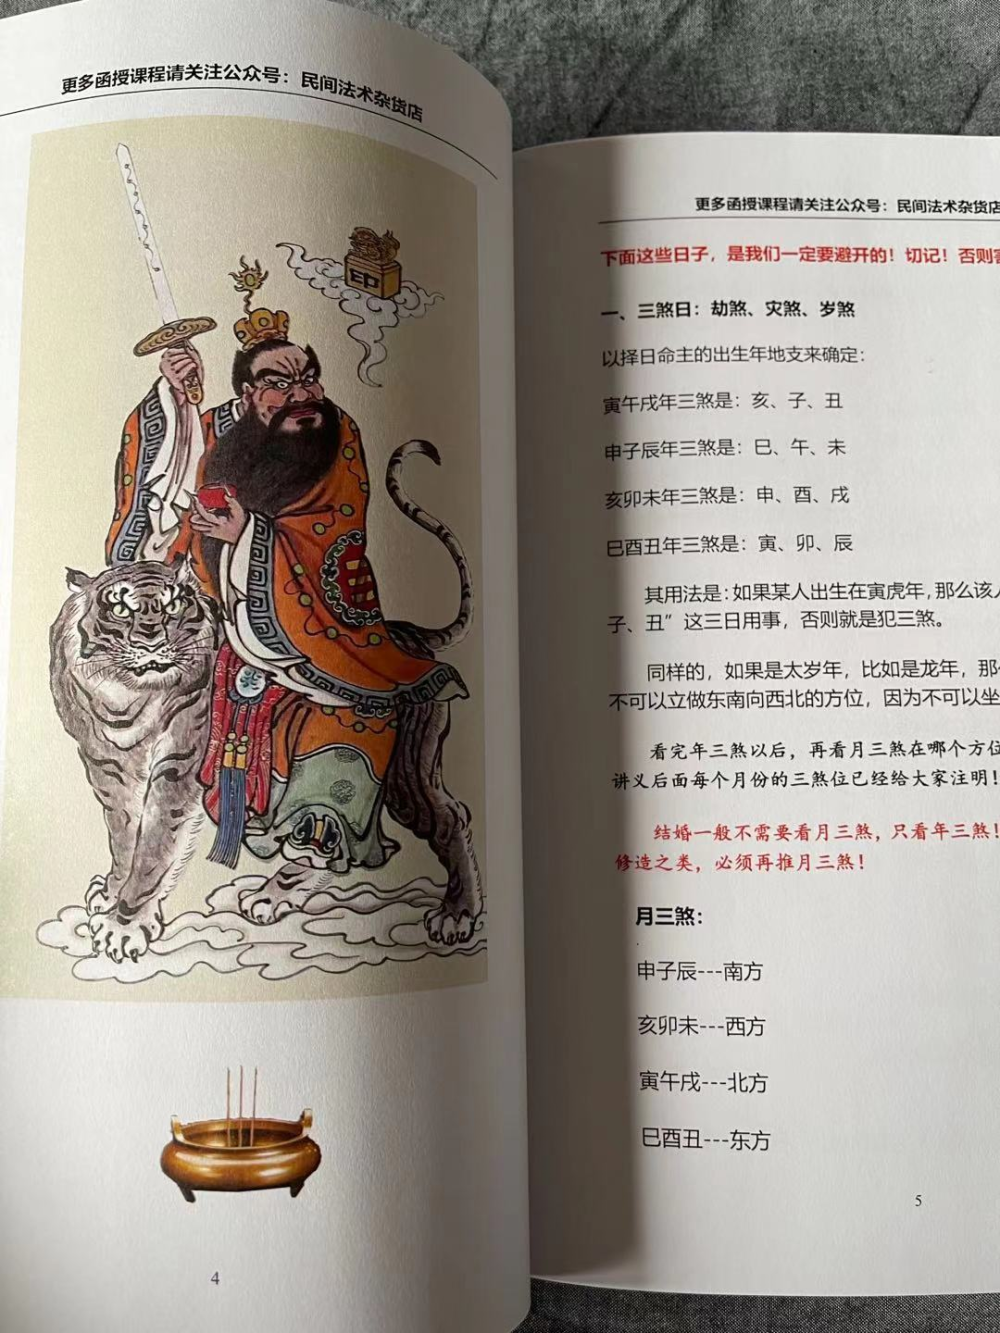 更多函授课程请关注公众号：民间法术杂货店
印
4
更多函授课程请关注公众号：民间法术杂货店
下面这些日子，是我们一定要避开的！切记！否则害
一、三煞日：劫煞、灾煞、岁煞
以择日命主的出生年地支来确定：
寅午戌年三煞是：亥、子、丑
申子辰年三煞是：巳、午、未
亥卯未年三煞是：申、酉、戌
巳酉丑年三煞是：寅、卯、辰
其用法是：如果某人出生在寅虎年，那么该人
子、丑”这三日用事，否则就是犯三煞。
同样的，如果是太岁年，比如是龙年，那
不可以立做东南向西北的方位，因为不可以坐
看完年三煞以后，再看月三煞在哪个方位
讲义后面每个月份的三煞位已经给大家注明！
结婚一般不需要看月三煞，只看年三煞！
修造之类，必须再推月三煞！
月三煞：
申子辰---南方
亥卯未---西方
寅午戌---北方
巳酉丑---东方
5